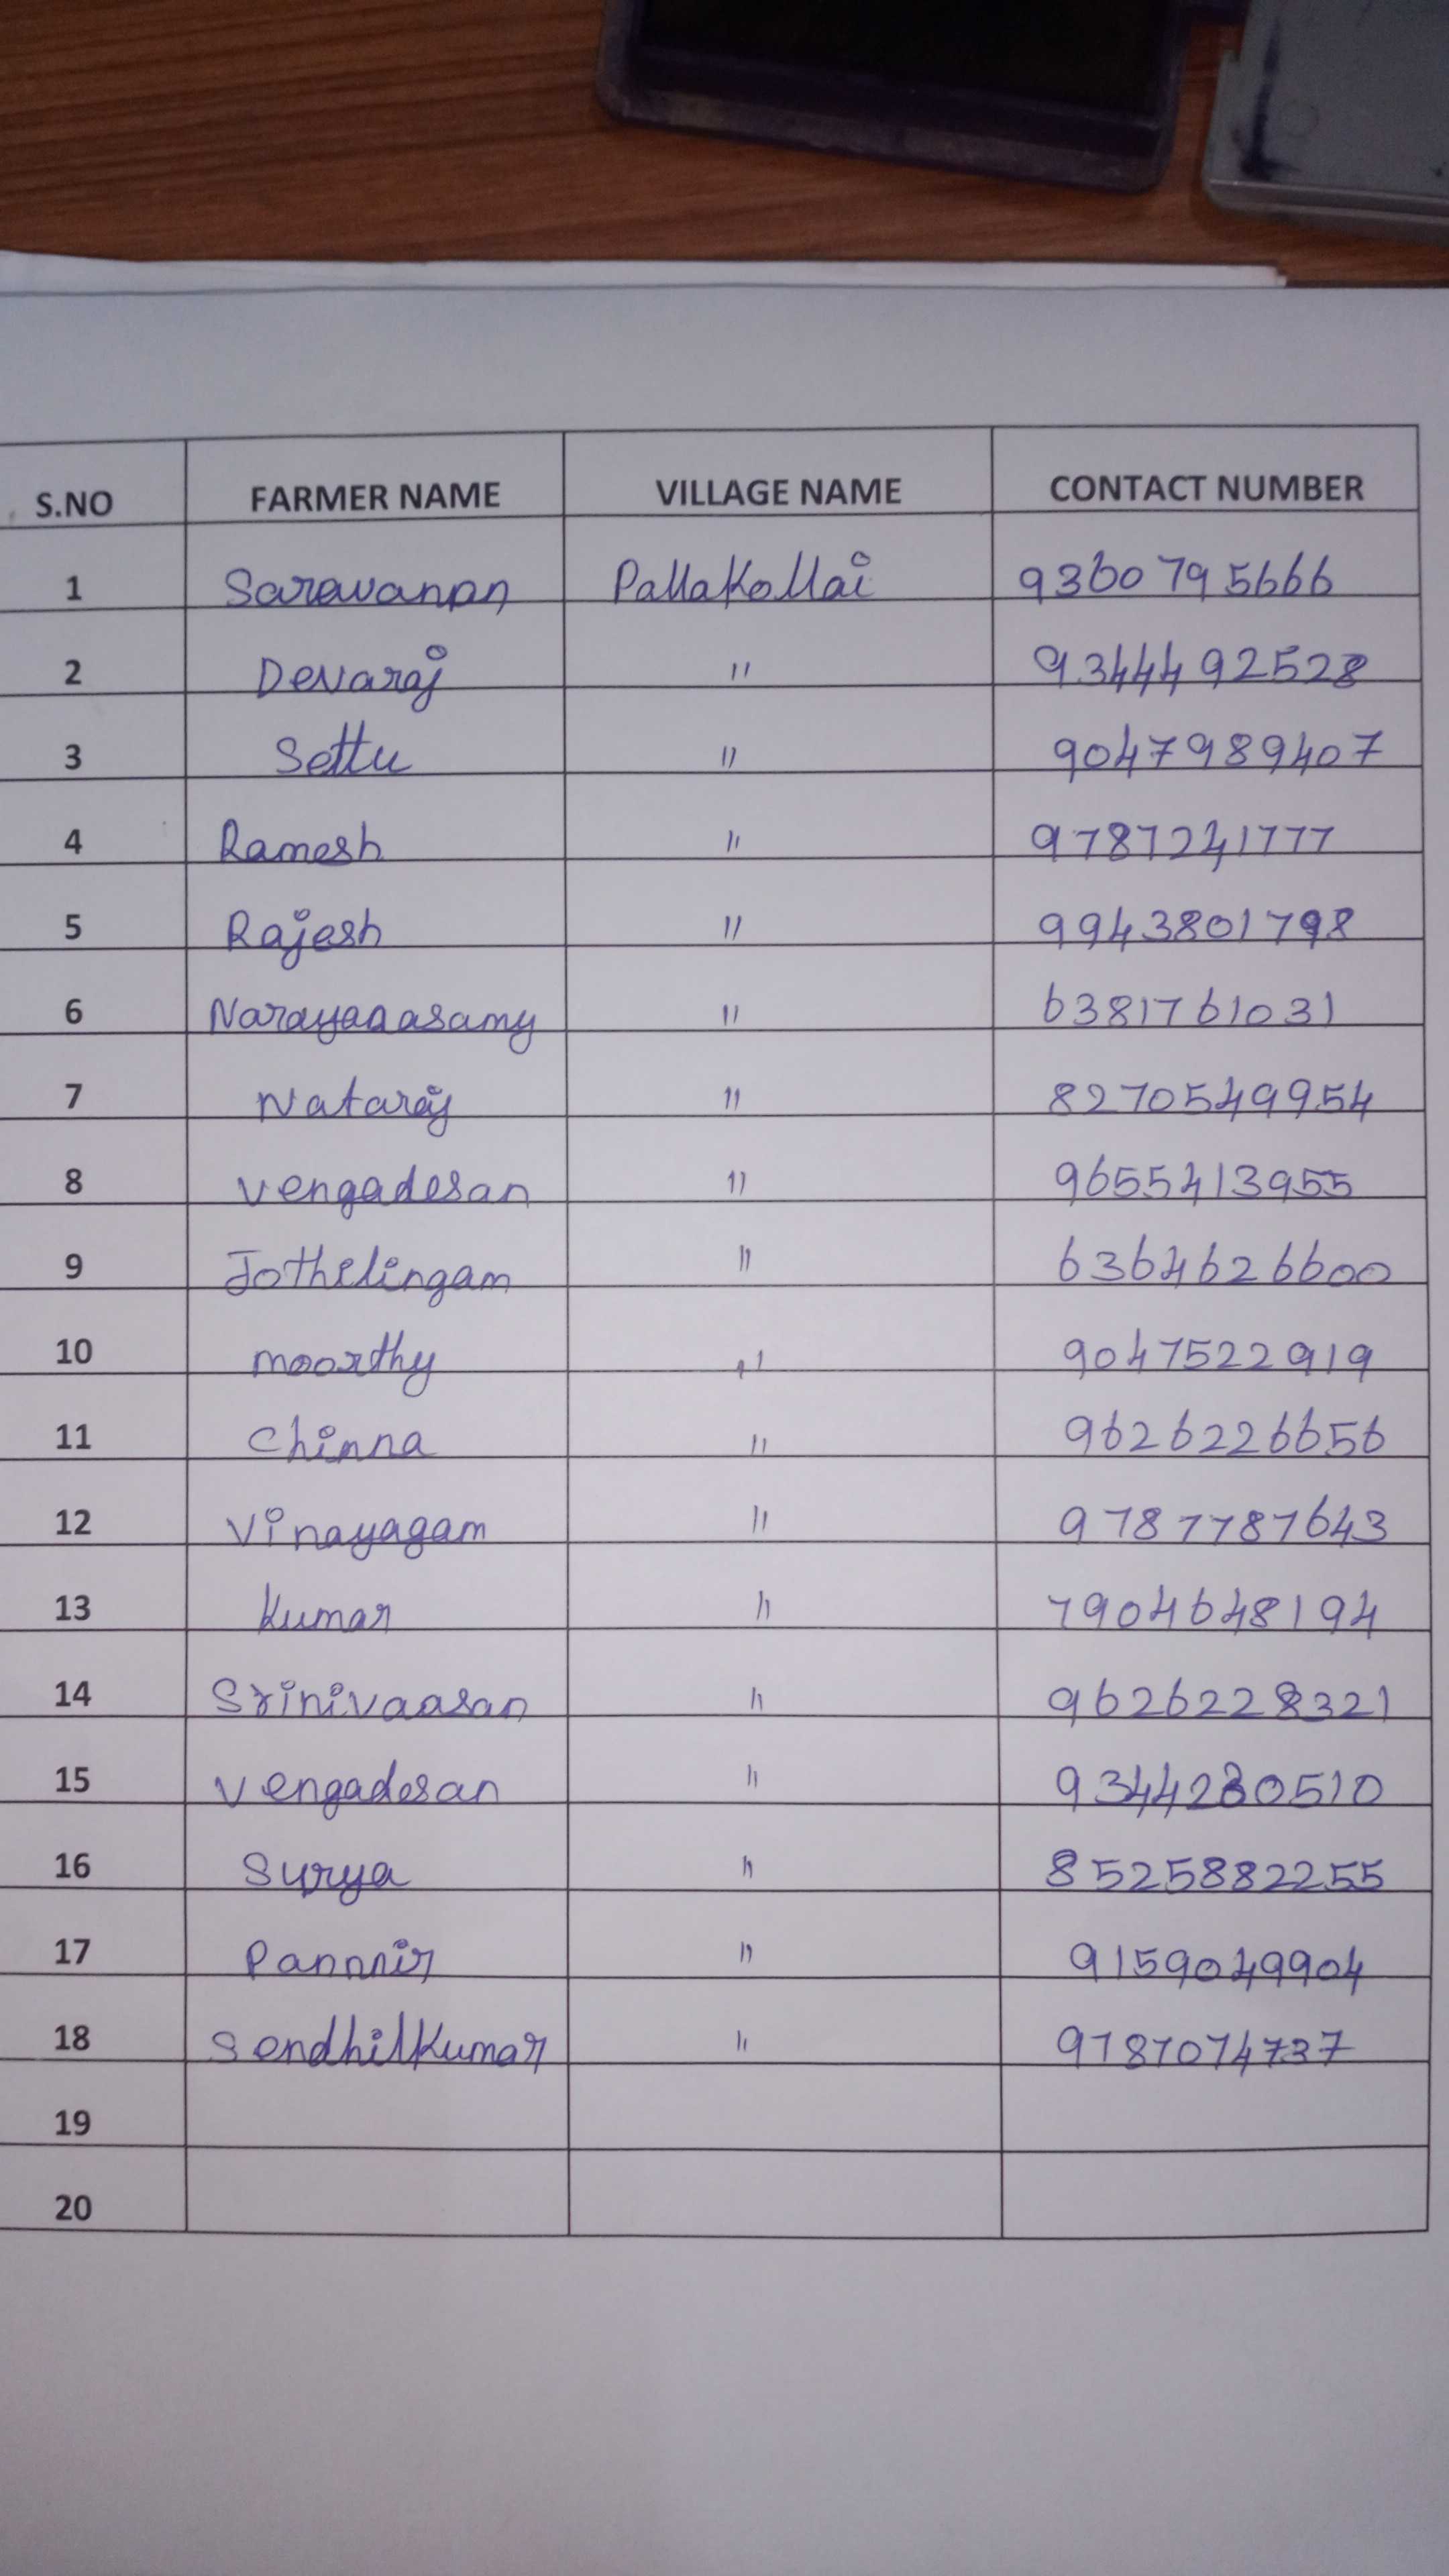 S.NO FARMER NAME VILLAGE NAME CONTACT NUMBER
1 Saravanan Pallakollai 9360795666
2 Devaraj " 9344492528
3 Settu " 9047989407
4 Ramesh " 9787241777
5 Rajesh " 9943801798
6 Narayanasamy " 6381761031
7 Nataraj " 8270549954
8 Vengadesan " 9655413955
9 Jothilingam " 6364626600
10 moorthy " 9047522919
11 Chinna " 9626226656
12 Vinayagam " 9787787643
13 Kumar " 7904648194
14 Srinivaasan " 9626228321
15 Vengadesan " 9344230510
16 Surya " 8525882255
17 Pannnir " 9159049904
18 Sendhilkumar " 9787074737
19
20